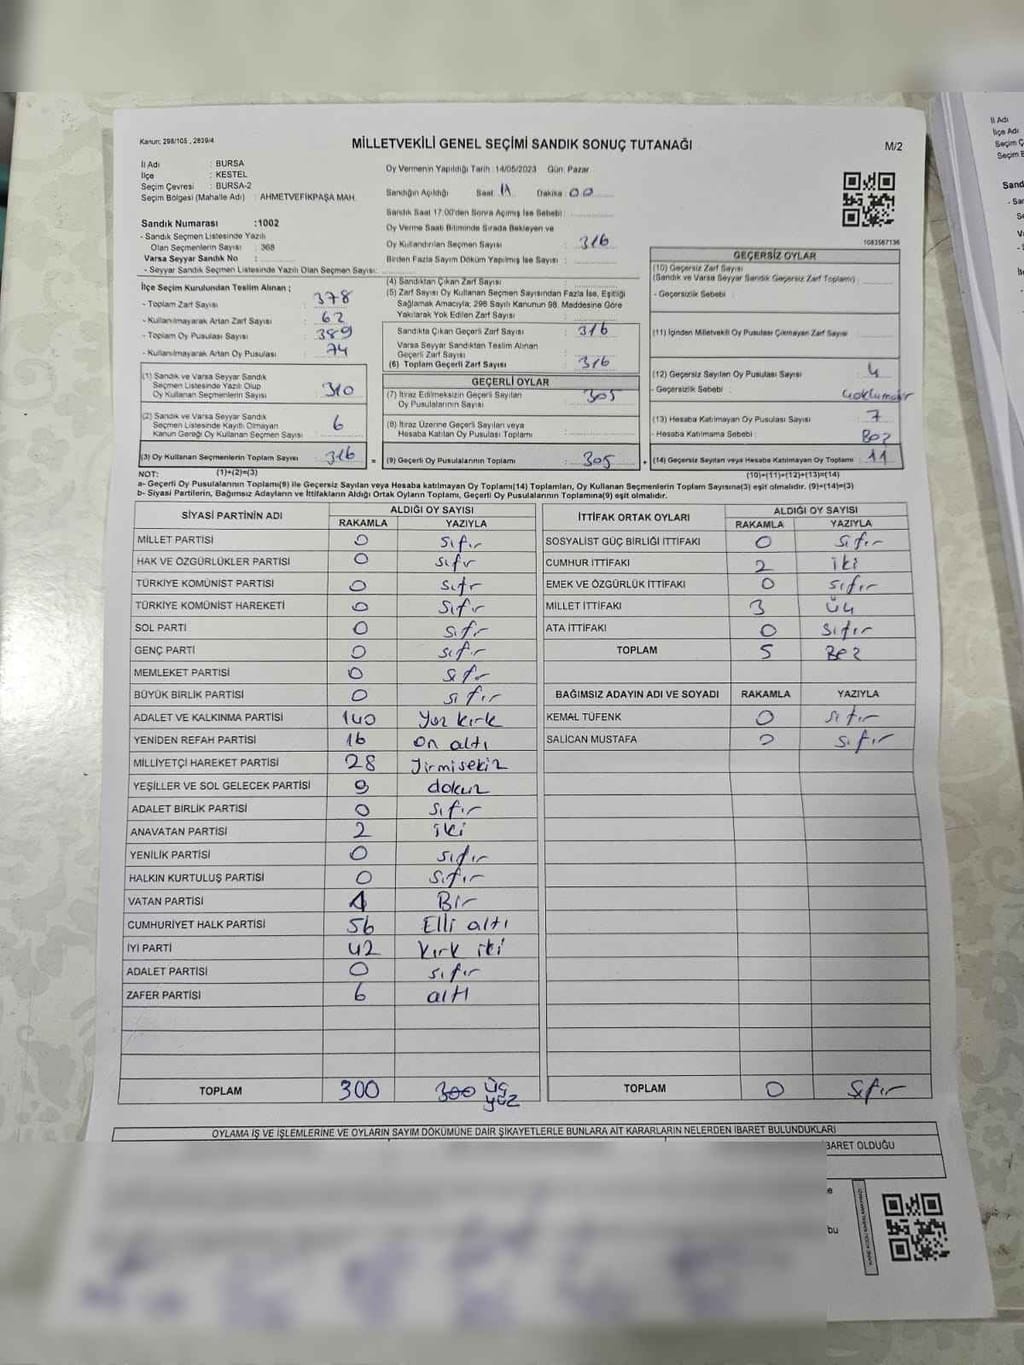 Kanun: 298/105 , 2839/4
MİLLETVEKİLİ GENEL SEÇİMİ SANDIK SONUÇ TUTANAĞI
M/2
İl Adı : BURSA
İlçe : KESTEL
Seçim Çevresi : BURSA-2
Seçim Bölgesi (Mahalle Adı) : AHMETVEFİKPAŞA MAH.
Sandık Numarası :1002
- Sandık Seçmen Listesinde Yazılı
Olan Seçmenlerin Sayısı : 368
Varsa Seyyar Sandık No :
- Seyyar Sandık Seçmen Listesinde Yazılı Olan Seçmen Sayısı:
Oy Vermenin Yapıldığı Tarih :14/05/2023 Gün: Pazar
Sandığın Açıldığı Saat Dakika :00
Sandık Saat 17:00'den Sonra Açımış İse Sebebi:
Oy Verme Saati Bitiminde Sırada Bekleyen ve
Oy Kullandırılan Seçmen Sayısı : 316
Birden Fazla Sayım Döküm Yapılmış İse Sayısı :
1083567136
İlçe Seçim Kurulundan Teslim Alınan ;
- Toplam Zarf Sayısı : 378
- Kullanılmayarak Artan Zarf Sayısı : 62
- Toplam Oy Pusulası Sayısı : 389
- Kullanılmayarak Artan Oy Pusulası : 74
(1) Sandık ve Varsa Seyyar Sandık
Seçmen Listesinde Yazılı Olup
Oy Kullanan Seçmenlerin Sayısı : 310
(2) Sandık ve Varsa Seyyar Sandık
Seçmen Listesinde Kayıtlı Olmayan
Kanun Gereği Oy Kullanan Seçmen Sayısı : 6
(3) Oy Kullanan Seçmenlerin Toplam Sayısı : 316
(1)+(2)=(3)
(4) Sandıktan Çıkan Zarf Sayısı :
(5) Zarf Sayısı Oy Kullanan Seçmen Sayısından Fazla İse, Eşitliği
Sağlamak Amacıyla; 298 Sayılı Kanunun 98. Maddesine Göre
Yakılarak Yok Edilen Zarf Sayısı :
Sandıkta Çıkan Geçerli Zarf Sayısı : 316
Varsa Seyyar Sandıktan Teslim Alınan
Geçerli Zarf Sayısı :
(6) Toplam Geçerli Zarf Sayısı : 316
GEÇERLİ OYLAR
(7) İtiraz Edilmeksizin Geçerli Sayılan
Oy Pusulalarının Sayısı : 305
(8) İtiraz Üzerine Geçerli Sayılan veya
Hesaba Katılan Oy Pusulası Toplamı :
= (9) Geçerli Oy Pusulalarının Toplamı : 305 +
GEÇERSİZ OYLAR
(10) Geçersiz Zarf Sayısı
(Sandık ve Varsa Seyyar Sandık Geçersiz Zarf Toplamı) :
- Geçersizlik Sebebi :
(11) İçinden Milletvekili Oy Pusulası Çıkmayan Zarf Sayısı :
(12) Geçersiz Sayılan Oy Pusulası Sayısı : 4
- Geçersizlik Sebebi :
(13) Hesaba Katılmayan Oy Pusulası Sayısı : 7
- Hesaba Katılmama Sebebi : Boz
(14) Geçersiz Sayılan veya Hesaba Katılmayan Oy Toplamı : 11
(10)+(11)+(12)+(13)=(14)
NOT:
a- Geçerli Oy Pusulalarının Toplamı(9) ile Geçersiz Sayılan veya Hesaba katılmayan Oy Toplamı(14) Toplamları, Oy Kullanan Seçmenlerin Toplam Sayısına(3) eşit olmalıdır. (9)+(14)=(3)
b- Siyasi Partilerin, Bağımsız Adayların ve İttifakların Aldığı Ortak Oyların Toplamı, Geçerli Oy Pusulalarının Toplamına(9) eşit olmalıdır.
SİYASİ PARTİNİN ADI
ALDIĞI OY SAYISI
RAKAMLA YAZIYLA
MİLLET PARTİSİ 0 sıfır
HAK VE ÖZGÜRLÜKLER PARTİSİ 0 sıfır
TÜRKİYE KOMÜNİST PARTİSİ 0 sıfır
TÜRKİYE KOMÜNİST HAREKETİ 0 sıfır
SOL PARTİ 0 sıfır
GENÇ PARTİ 0 sıfır
MEMLEKET PARTİSİ 0 sıfır
BÜYÜK BİRLİK PARTİSİ 0 sıfır
ADALET VE KALKINMA PARTİSİ 140 Yüz kırk
YENİDEN REFAH PARTİSİ 16 on altı
MİLLİYETÇİ HAREKET PARTİSİ 28 Yirmisekiz
YEŞİLLER VE SOL GELECEK PARTİSİ 9 dokuz
ADALET BİRLİK PARTİSİ 0 sıfır
ANAVATAN PARTİSİ 2 iki
YENİLİK PARTİSİ 0 sıfır
HALKIN KURTULUŞ PARTİSİ 0 sıfır
VATAN PARTİSİ 1 Bir
CUMHURİYET HALK PARTİSİ 56 Elli altı
İYİ PARTİ 42 kırk iki
ADALET PARTİSİ 0 sıfır
ZAFER PARTİSİ 6 altı
TOPLAM 300 300 üç yüz
İTTİFAK ORTAK OYLARI
ALDIĞI OY SAYISI
RAKAMLA YAZIYLA
SOSYALİST GÜÇ BİRLİĞİ İTTİFAKI 0 sıfır
CUMHUR İTTİFAKI 2 iki
EMEK VE ÖZGÜRLÜK İTTİFAKI 0 sıfır
MİLLET İTTİFAKI 3 üç
ATA İTTİFAKI 0 sıfır
TOPLAM 5 Beş
BAĞIMSIZ ADAYIN ADI VE SOYADI RAKAMLA YAZIYLA
KEMAL TÜFENK 0 sıfır
SALİCAN MUSTAFA 0 sıfır
TOPLAM 0 sıfır
OYLAMA İŞ VE İŞLEMLERİNE VE OYLARIN SAYIM DÖKÜMÜNE DAİR ŞİKAYETLERLE BUNLARA AİT KARARLARIN NELERDEN İBARET BULUNDUKLARI
BARET OLDUĞU
bu
İl Adı
İlçe Adı
Seçim Ç
Seçim B
Sand